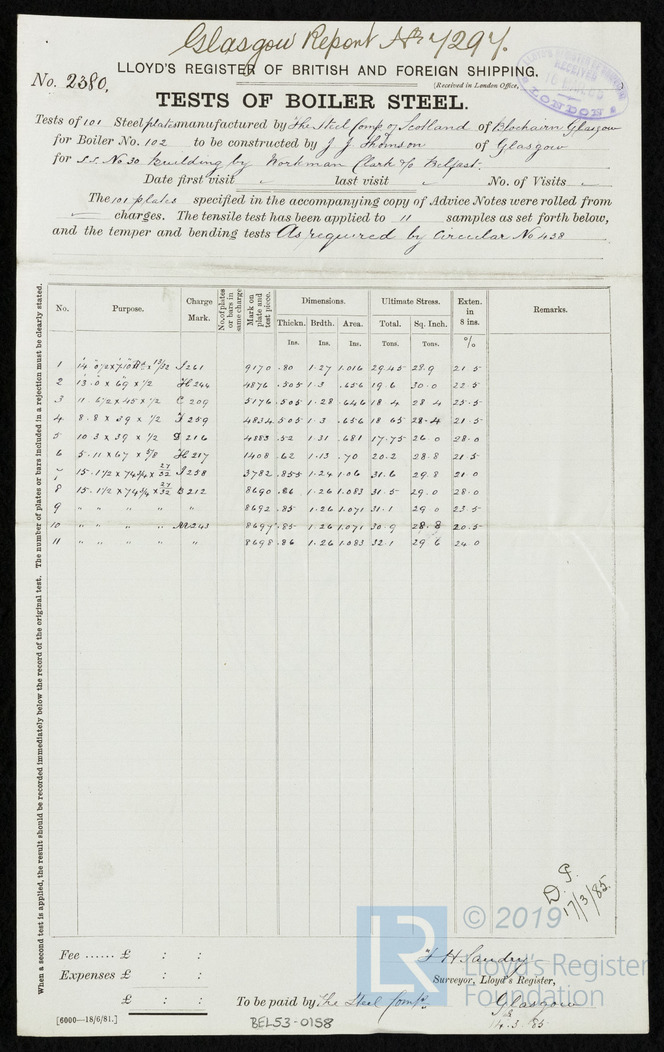 Glasgow Report No 7297.
No. 2380.
LLOYD'S REGISTER OF BRITISH AND FOREIGN SHIPPING.
(Received in London Office,
RECEIVED
LONDON
TESTS OF BOILER STEEL.
Tests of 101 Steel plates manufactured by The Steel Comp. of Scotland of Blochairn Glasgow
for Boiler No. 102 to be constructed by J. J. Thomson of Glasgow
for S.S. No 30 Building by Workman Clark & Co Belfast.
Date first visit last visit No. of Visits
The 101 plates specified in the accompanying copy of Advice Notes were rolled from
charges. The tensile test has been applied to 11 samples as set forth below,
and the temper and bending tests As required by Circular No 438
When a second test is applied, the result should be recorded immediately below the record of the original test. The number of plates or bars included in a rejection must be clearly stated.
No. Purpose. Charge Mark. No. of plates or bars in same charge Mark on plate and test piece. Dimensions. Ultimate Stress. Exten. in 8 ins. Remarks.
Thickn. Brdth. Area. Total. Sq. Inch.
Ins. Ins. Ins. Tons. Tons. %
1 261 9170 .80 1.27 1.016 29.45 28.9 21.5
2 13.0 x 69 x 1/2 H244 4876 .505 1.3 .656 19.6 30.0 22.5
3 11. 6 1/2 x 45 x 1/2 C 209 5176 .505 1.28 .646 18.4 28.4 25.5
4 8.8 x 39 x 1/2 259 4834 .505 1.3 .656 18.65 28.4 21.5
5 10 3 x 39 x 1/2 216 4883 .52 1.31 .681 17.75 26.0 28.0
6 5.11 x 67 x 5/8 H217 1408 .62 1.13 .70 20.2 28.8 21.5
7 15. 1 1/2 x 74 3/4 x 27/32 258 3782 .855 1.24 1.06 31.6 29.8 21.0
8 15. 1 1/2 x 74 3/4 x 27/32 B212 8690 .86 1.26 1.083 31.5 29.0 28.0
9 " " " " " 8692 .85 1.26 1.071 31.1 29.0 23.5
10 " " " " M243 8697 .85 1.26 1.071 30.9 28.8 20.5
11 " " " " " 8698 .86 1.26 1.083 32.1 29.6 24.0
D. P.
17/3/85.
© 2019
LR
Lloyd's Register
Foundation
Fee ...... £ : :
Expenses £ : :
£ : :
Surveyor, Lloyd's Register,
To be paid by The Steel Compy. Glasgow
14.3.85
[6000—18/6/81.]
BEL53-0158